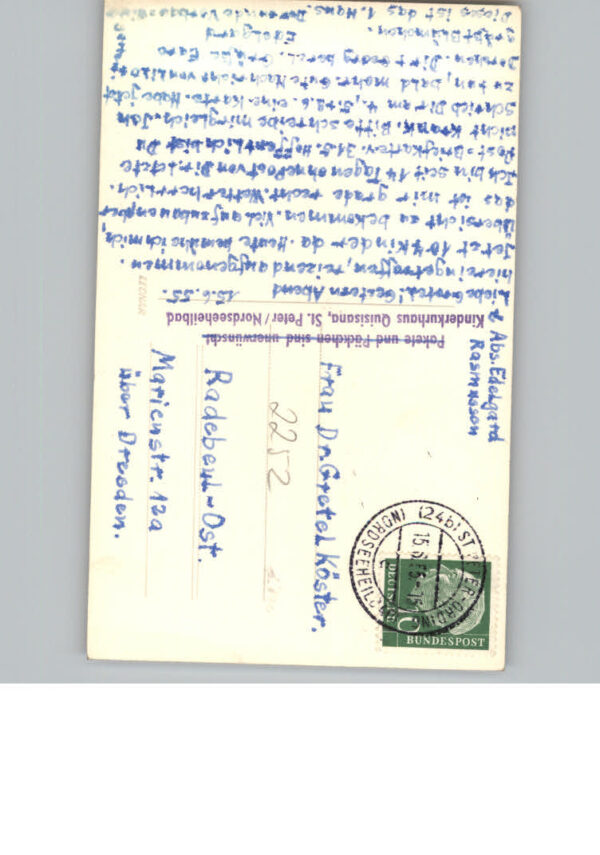 Liebe Gretel! Gestern Abend 15.6.55.
hier eingetroffen, reizend aufgenommen.
Jetzt 104 Kinder da. Heute bemühe ich mich,
Übersicht zu bekommen. Viel aufzubauen, aber
das ist mir grade recht. Wetter herrlich.
Ich bin seit 14 Tagen ohne Post von Dir. Letzte
Post = Briefkarten. 31.5. Hoffentlich bist Du
nicht krank. Bitte schreibe mir gleich. Ich
schrieb Dir am 4., 5. + 12.6. eine Karte. Habe jetzt
zu tun, bald mehr. Gute Nacht
Denken. Dir + Georg herzl. Grüße Eure
Edelgard
Dieses ist das 1. Haus.
Abs. Edelgard
Rasmussen
Kinderkurhaus Quisisana, St. Peter/Nordseeheilbad
Pakete und Päckchen sind unerwünscht
LEONAR
Frau Dr. Gretel Köster.
2252
Radebeul-Ost.
Marienstr. 12a
über Dresden.
(24b) ST. PETER-ORDING
NORDSEEHEILBAD
15.6.55
10
DEUTSCHE
BUNDESPOST